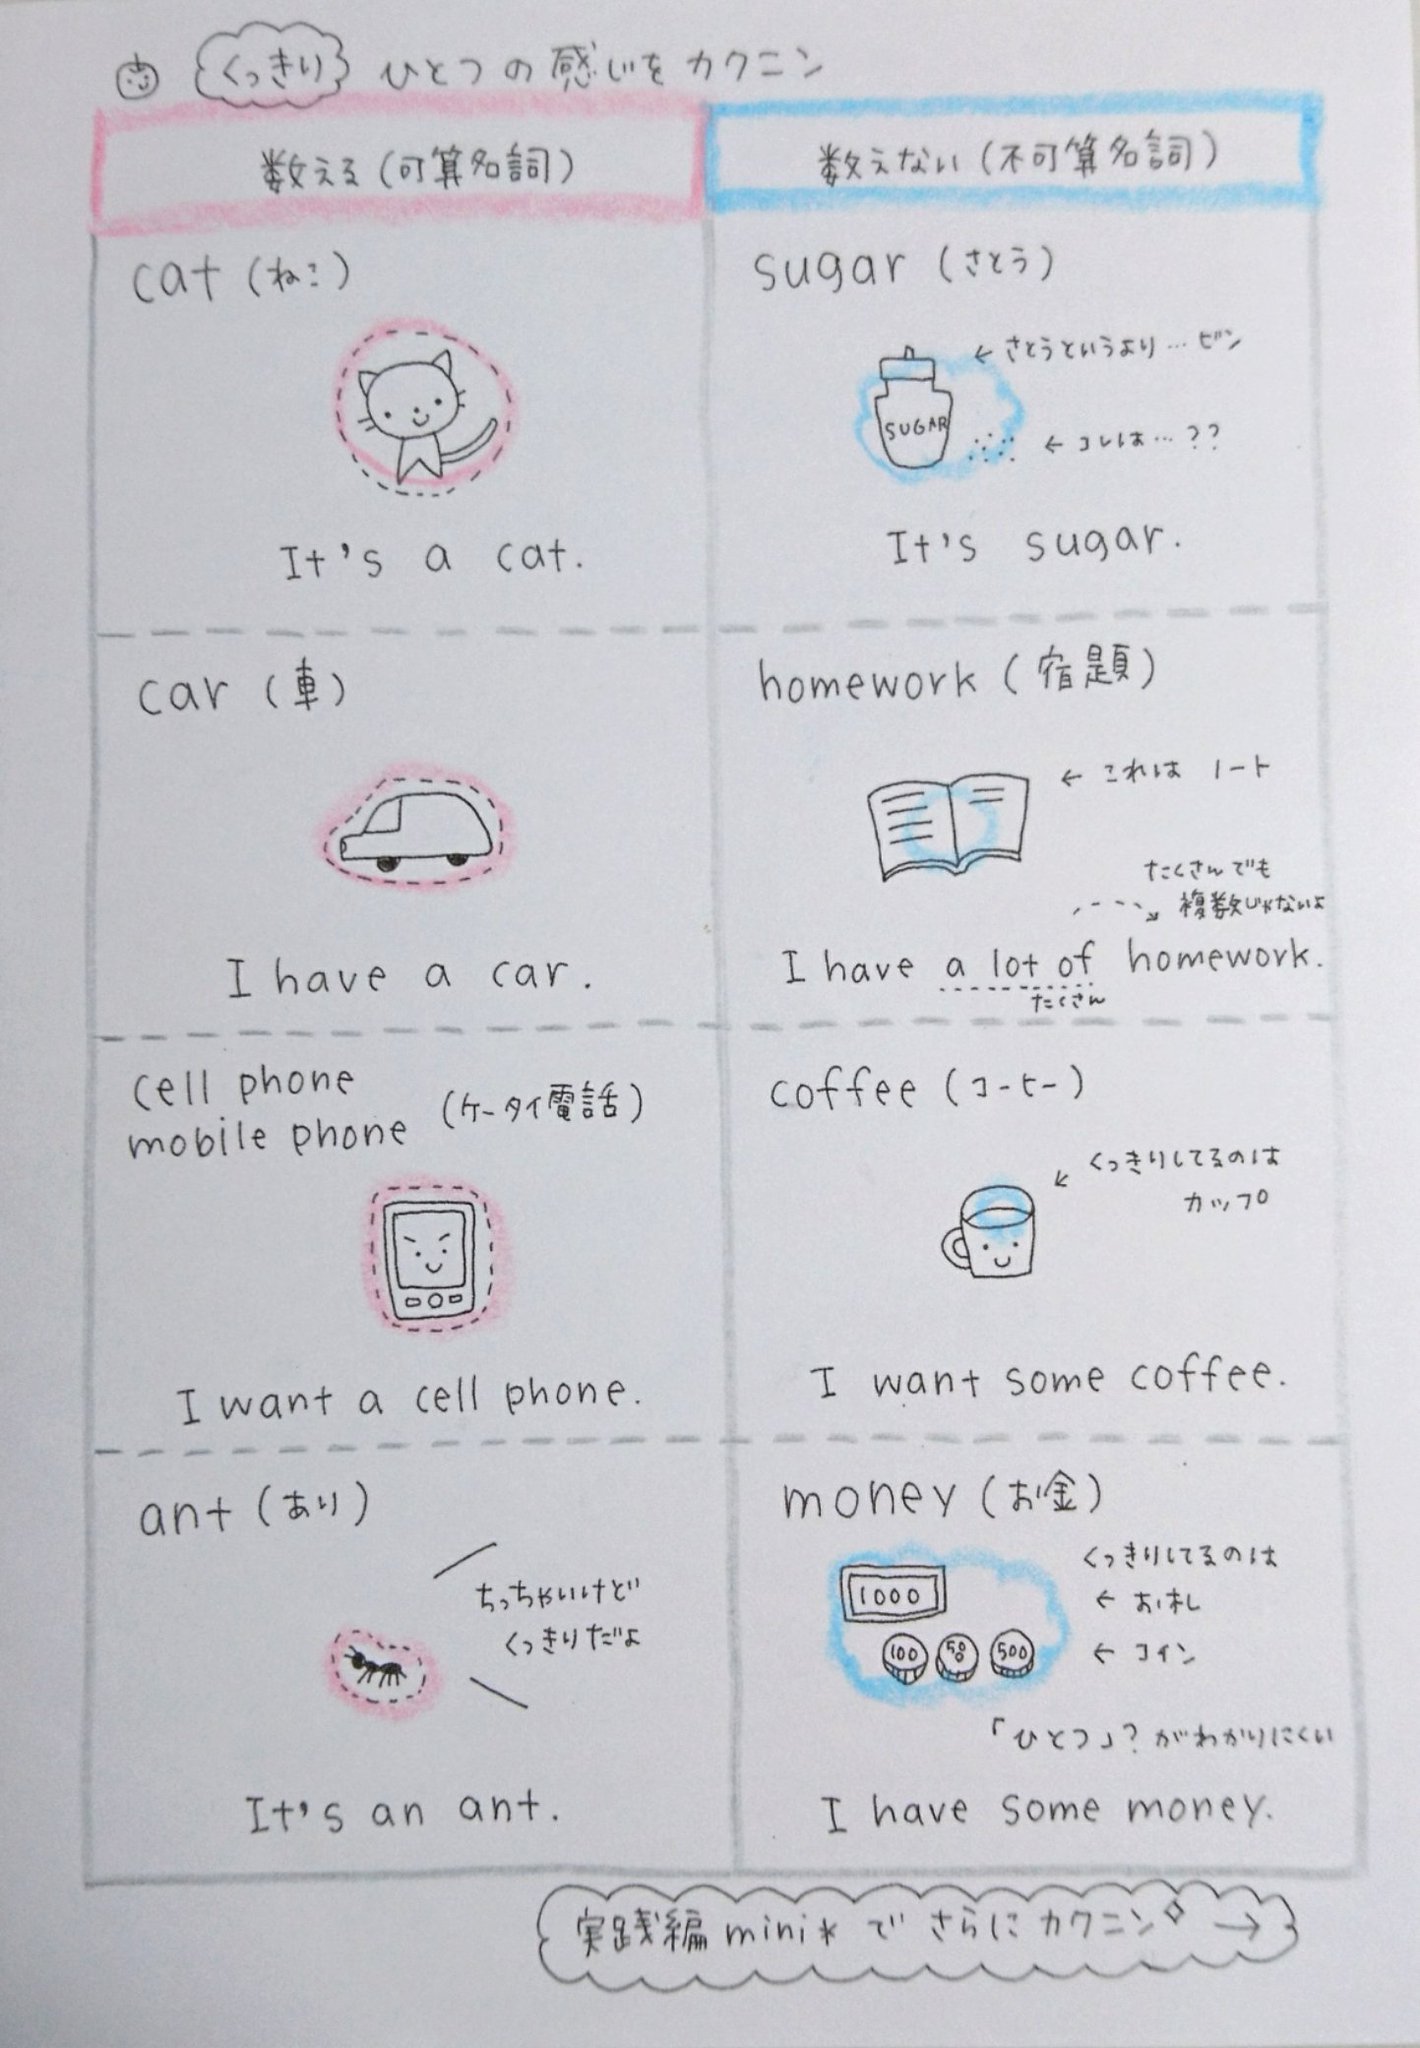 くっきり ひとつの感じをカクニン
数える(可算名詞)
数えない(不可算名詞)
cat (ねこ)
It's a cat.
sugar (さとう)
← さとうというより… ビン
SUGAR
← コレは…??
It's sugar.
car (車)
I have a car.
homework (宿題)
← これは ノート
たくさんでも
複数じゃないよ
I have a lot of homework.
たくさん
cell phone
mobile phone
(ケータイ電話)
I want a cell phone.
coffee (コーヒー)
くっきりしてるのは
カップ
I want some coffee.
ant (あり)
ちっちゃいけど
くっきりだよ
It's an ant.
money (お金)
くっきりしてるのは
← お札
← コイン
1000
100 50 500
「ひとつ」?がわかりにくい
I have some money.
実践編mini*で さらにカクニン →